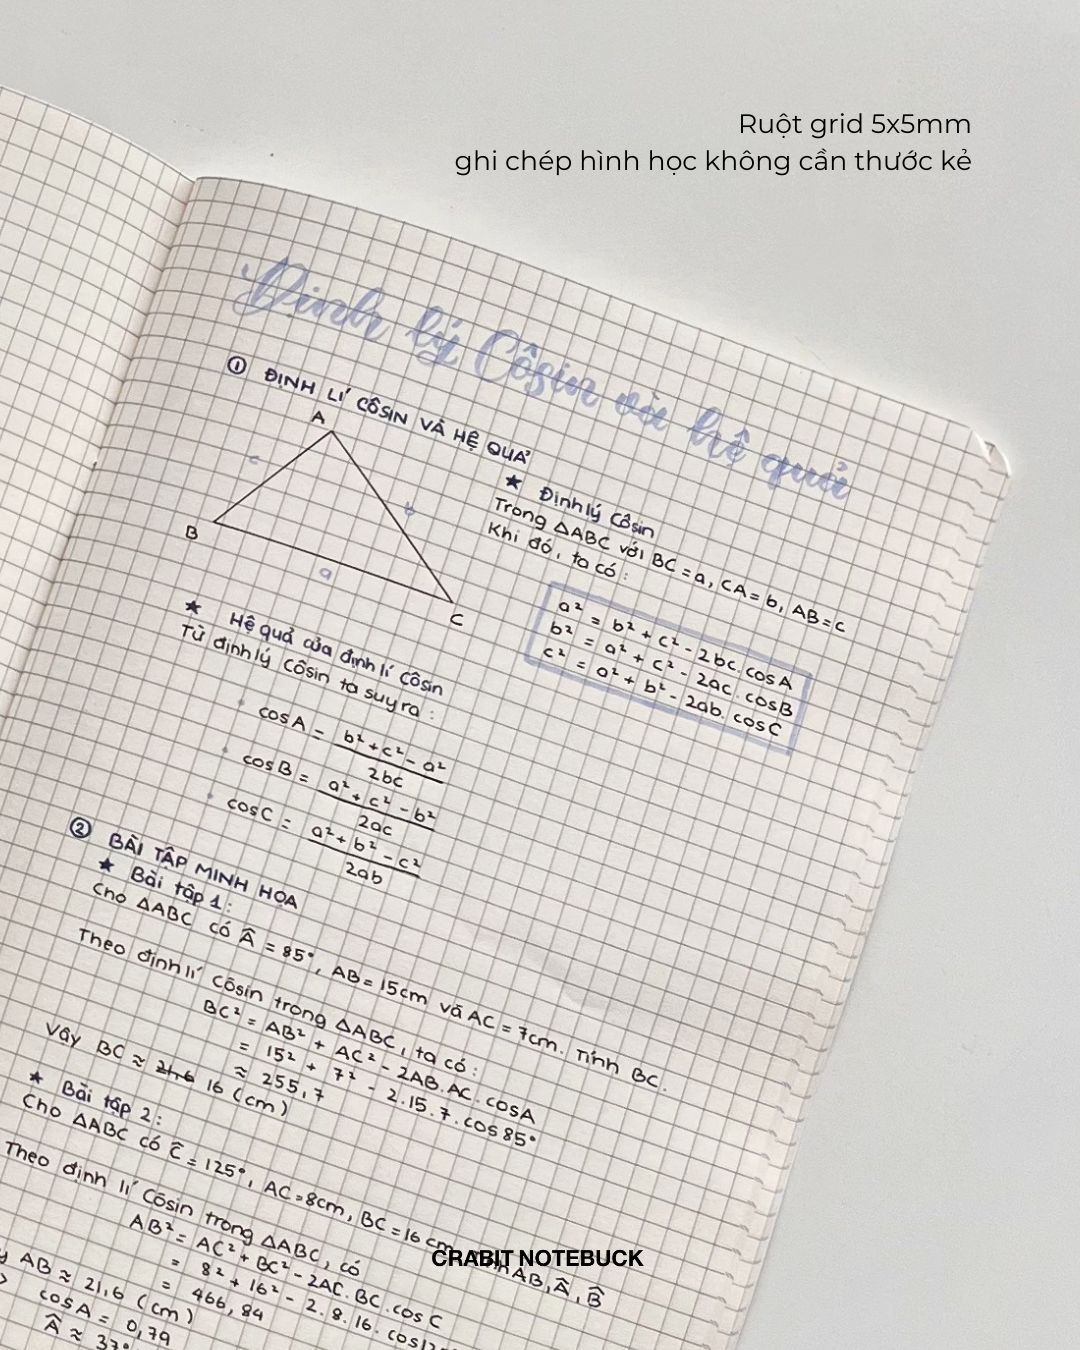 Ruột grid 5x5mm
ghi chép hình học không cần thước kẻ
Định lý Côsin và hệ quả
① ĐỊNH LÍ CÔSIN VÀ HỆ QUẢ
A
c
b
B
a
C
★ Định lý Côsin
Trong ΔABC với BC = a, CA = b, AB = c
Khi đó, ta có:
a² = b² + c² - 2bc. cosA
b² = a² + c² - 2ac. cosB
c² = a² + b² - 2ab. cosC
★ Hệ quả của định lí Côsin
Từ định lý Côsin ta suy ra:
cosA = b² + c² - a² / 2bc
cosB = a² + c² - b² / 2ac
cosC = a² + b² - c² / 2ab
② BÀI TẬP MINH HỌA
★ Bài tập 1:
Cho ΔABC có Â = 85°, AB = 15cm và AC = 7cm. Tính BC.
Theo định lí Côsin trong ΔABC, ta có:
BC² = AB² + AC² - 2AB.AC.cosA
= 15² + 7² - 2.15.7.cos85°
≈ 255,7
Vậy BC ≈ 21,6 16 (cm)
★ Bài tập 2:
Cho ΔABC có Ĉ = 125°, AC = 8cm, BC = 16 cm. AB, Â, B̂
Theo định lí Côsin trong ΔABC, có
AB² = AC² + BC² - 2AC.BC.cosC
= 8² + 16² - 2.8.16.
= 466,84
AB ≈ 21,6 (cm)
cosA = 0,79
Â ≈ 37°
CRABIT NOTEBUCK